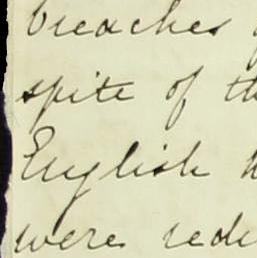 breaches
spite of
English
were